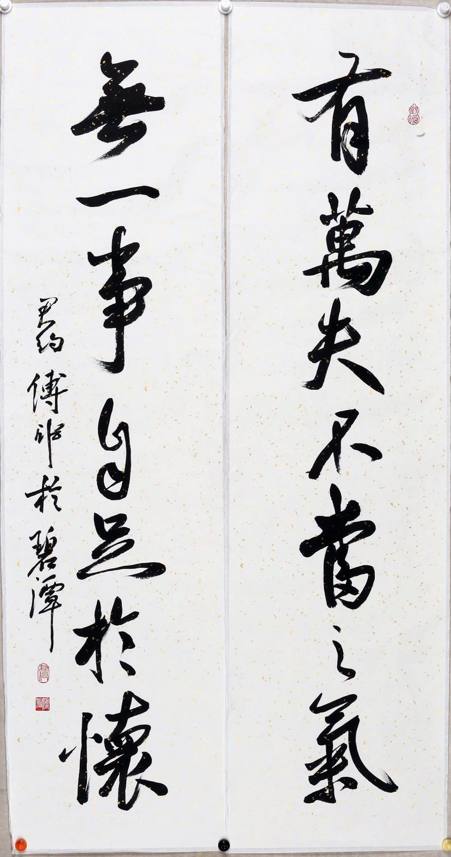 有萬夫不當之氣
無一事自足於懷
君約 傅申於碧潭